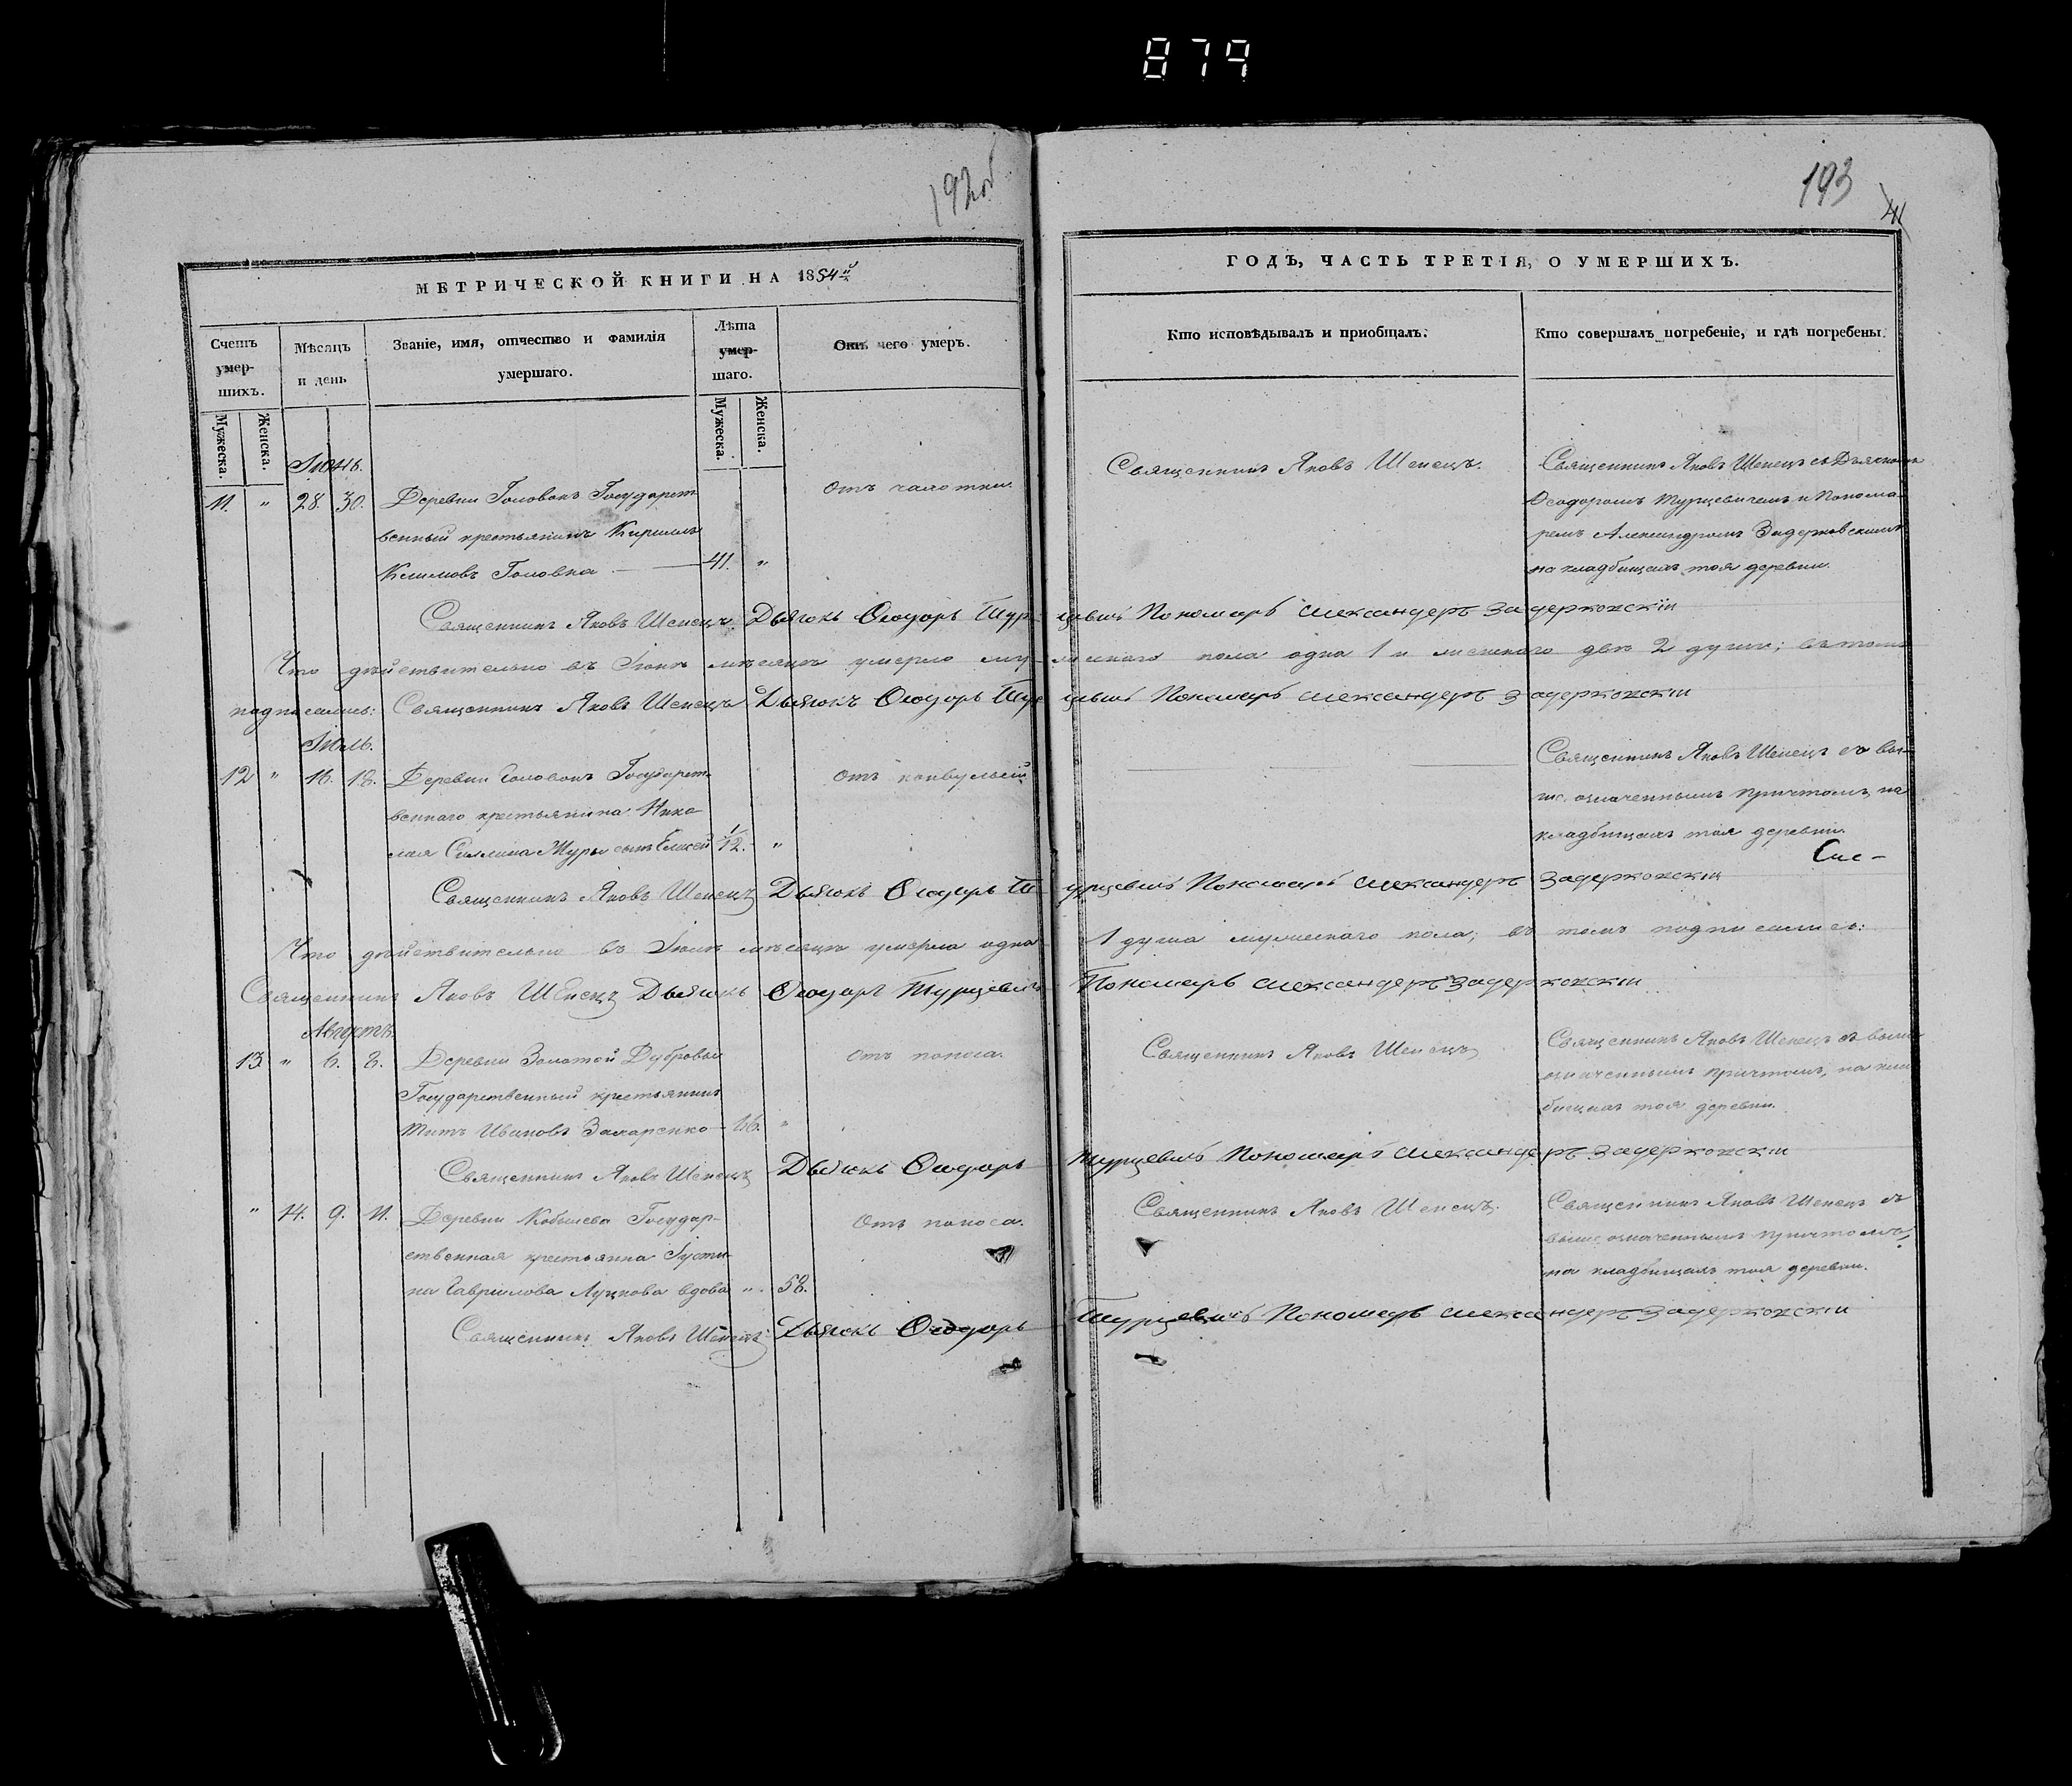 879
192об
193
41
МЕТРИЧЕСКОЙ КНИГИ НА 1854й
ГОДЪ, ЧАСТЬ ТРЕТІЯ, О УМЕРШИХЪ.
Счетъ умер-шихъ.
Мѣсяцъ и день
Званіе, имя, отчество и фамилія умершаго.
Лѣта умер-шаго.
Отъ чего умеръ.
Кто исповѣдывалъ и пріобщалъ.
Кто совершалъ погребеніе, и гдѣ погребены.
Мужеска.
Женска.
Мужеска.
Женска.
Іюнь.
11. " 28. 30. Деревни Головокъ Государст-
венный крестьянинъ Кириллъ
Климовъ Головка 41. "
Отъ чахотки.
Священникъ Яковъ Шепецъ.
Священникъ Яковъ Шепецъ съ Дьячкомъ
Ѳеодоромъ Турцевичемъ и Понома-
ремъ Александромъ Задерковскимъ
на кладбищахъ тоя деревни.
Священникъ Яковъ Шепецъ Дьячокъ Ѳеодоръ Турцевичъ Пономарь Александеръ Задерковскіи
Что дѣйствительно въ Іюнѣ мѣсяцѣ умерло мужескаго пола одна 1 и женскаго двѣ 2 души; въ томъ
подписались: Священникъ Яковъ Шепецъ Дьячокъ Ѳеодоръ Турцевичъ Пономарь Александеръ Задерковскіи
Іюль.
12 " 16. 18. Деревни Головокъ Государст-
веннаго крестьянина Нико-
лая Силлина Журы сынъ Елисей 1/12. "
Отъ конвульсій
Священникъ Яковъ Шепецъ съ вы-
ше означеннымъ причтомъ, на
кладбищахъ тоя деревни.
Священникъ Яковъ Шепецъ Дьячокъ Ѳеодоръ Турцевичъ Пономарь Александеръ Задерковскіи
Что дѣйствительно въ Іюлѣ мѣсяцѣ умерла одна 1 душа мужескаго пола; въ томъ подписались:
Священникъ Яковъ Шепецъ Дьячокъ Ѳеодоръ Турцевичъ Пономарь Александеръ Задерковскіи
Августъ.
13 " 6. 8. Деревни Золотой Дубровы
Государственный крестьянинъ
Титъ Ивановъ Захаренко 66. "
Отъ поноса.
Священникъ Яковъ Шепецъ
Священникъ Яковъ Шепецъ съ выше
означеннымъ причтомъ, на клад-
бищахъ тоя деревни.
Священникъ Яковъ Шепецъ Дьячокъ Ѳеодоръ Турцевичъ Пономарь Александеръ Задерковскіи
" 14. 9. 11. Деревни Кобылева Государ-
ственная крестьянка Іусти-
на Гаврилова Луцкова вдова " 58.
Отъ поноса.
Священникъ Яковъ Шепецъ.
Священникъ Яковъ Шепецъ съ
выше означеннымъ причтомъ,
на кладбищахъ тоя деревни.
Священникъ Яковъ Шепецъ Дьячокъ Ѳеодоръ Турцевичъ Пономарь Александеръ Задерковскіи